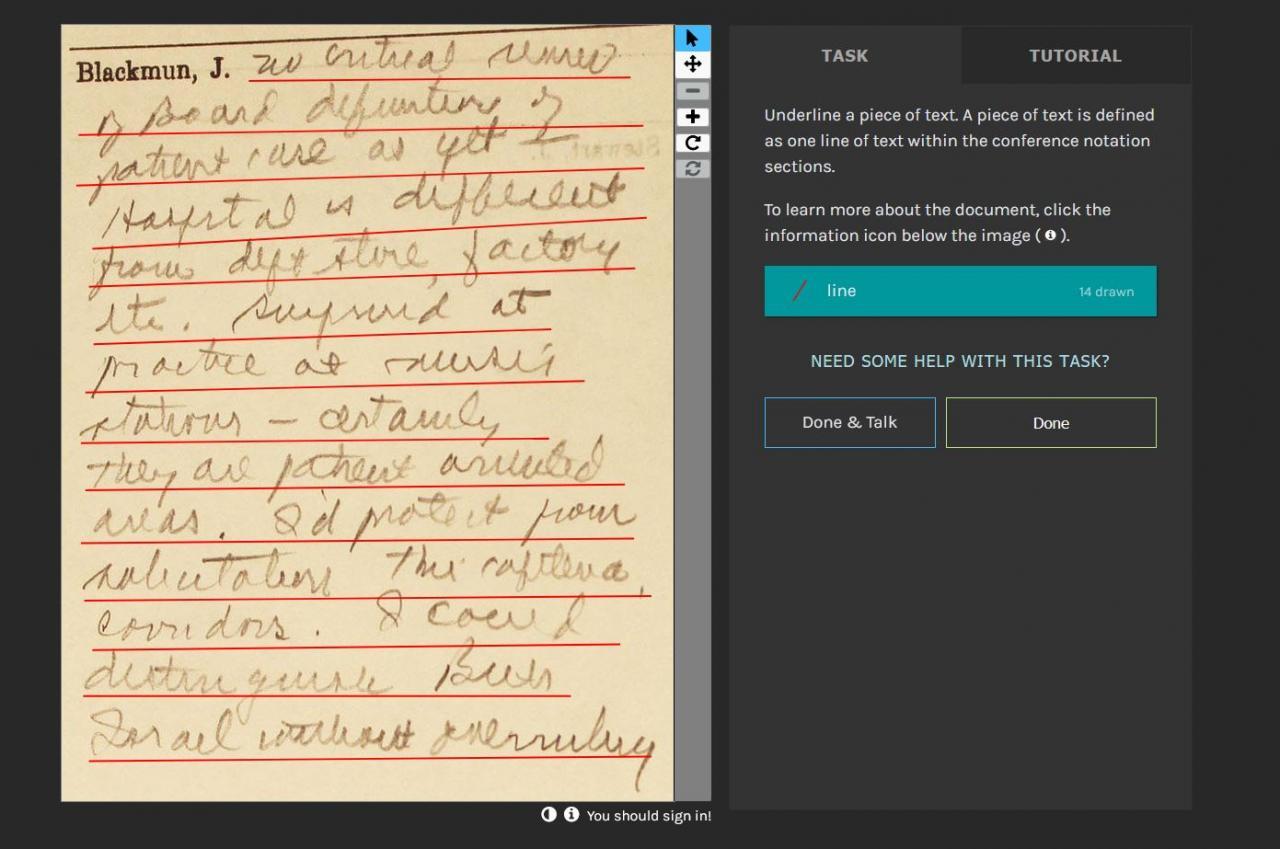 Blackmun, J. no critical review
of Board definition of
patient care as yet —
Hospital is different
from dept store, factory
etc. Surprised at
practice at nurse's
stations — certainly
They are patient oriented
areas. I'd protect from
solicitation The cafeteria,
corridors. I could
distinguish Beth
Israel without overruling
TASK
TUTORIAL
Underline a piece of text. A piece of text is defined
as one line of text within the conference notation
sections.
To learn more about the document, click the
information icon below the image ( ).
line
14 drawn
NEED SOME HELP WITH THIS TASK?
Done & Talk
Done
You should sign in!